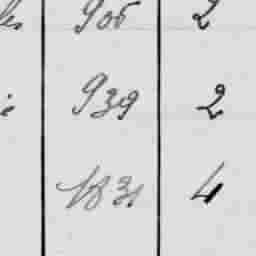 905 2
939 2
1831 4